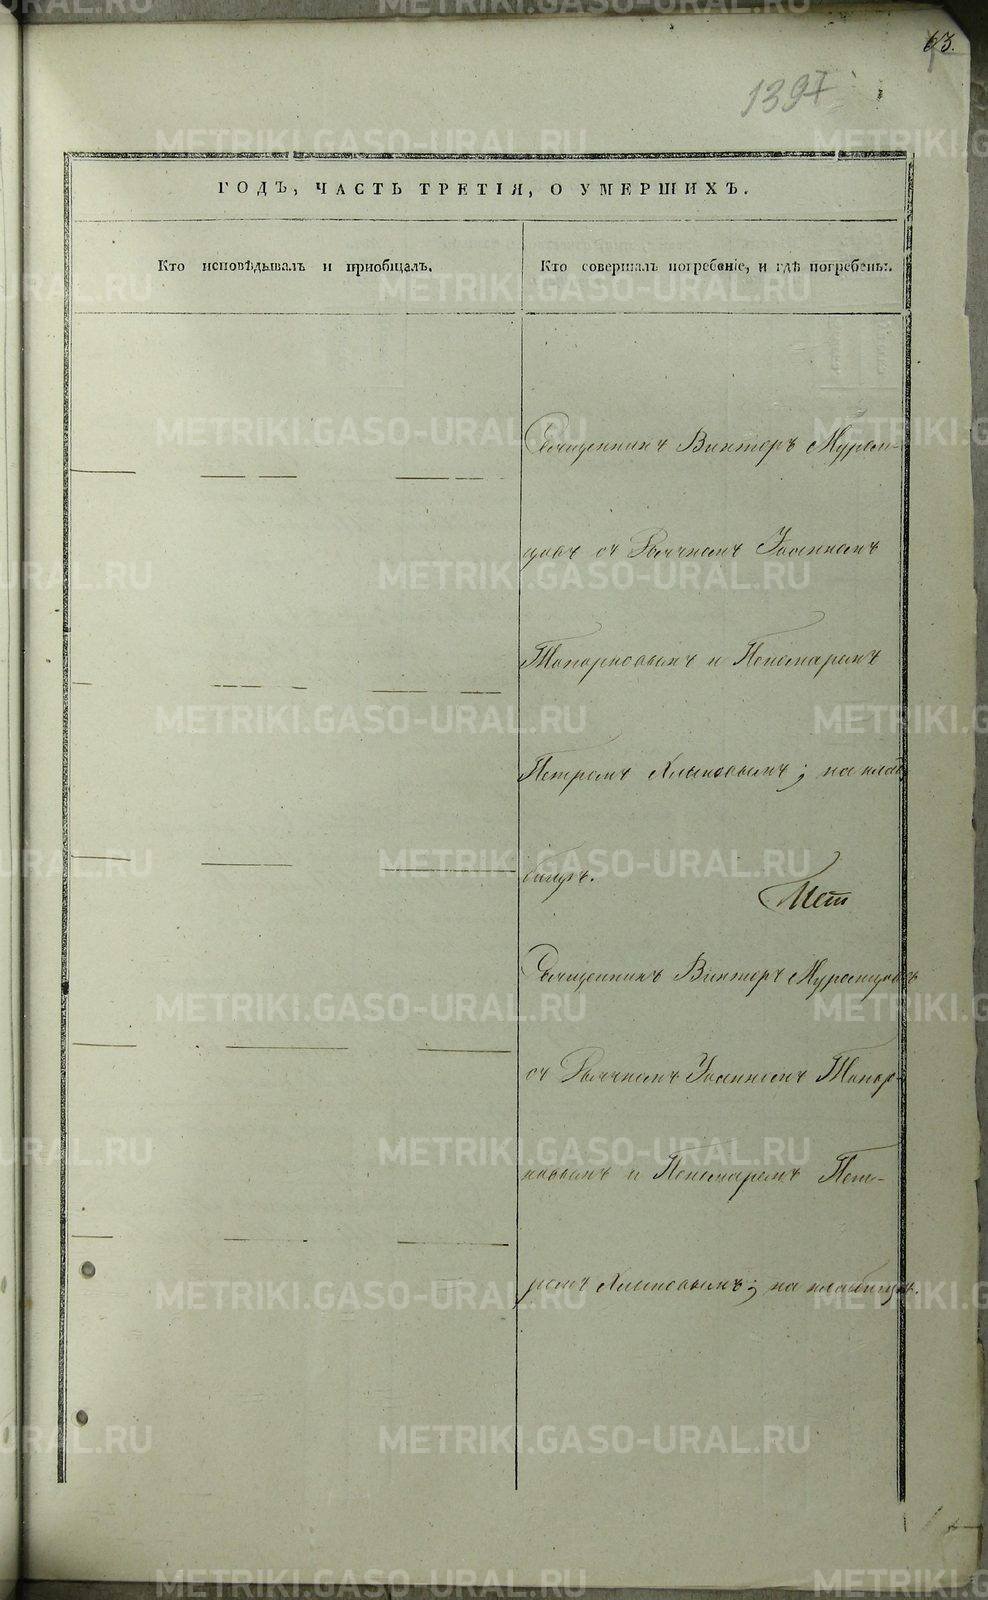 63.
1397
ГОДЪ, ЧАСТЬ ТРЕТІЯ, О УМЕРШИХЪ.
Кто исповѣдывалъ и пріобщалъ.
Кто совершалъ погребеніе, и гдѣ погребены.
Священникъ Викторъ Муром-
цовъ съ Дьячкомъ Іоанномъ
Топорковымъ и Пономаремъ
Петромъ Хлыновымъ; на клад-
бищѣ.
Священникъ Викторъ Муромцовъ
съ Дьячкомъ Іоанномъ Топор-
ковымъ и Пономаремъ Пет-
ромъ Хлыновымъ; на кладбищѣ.
METRIKI.GASO-URAL.RU